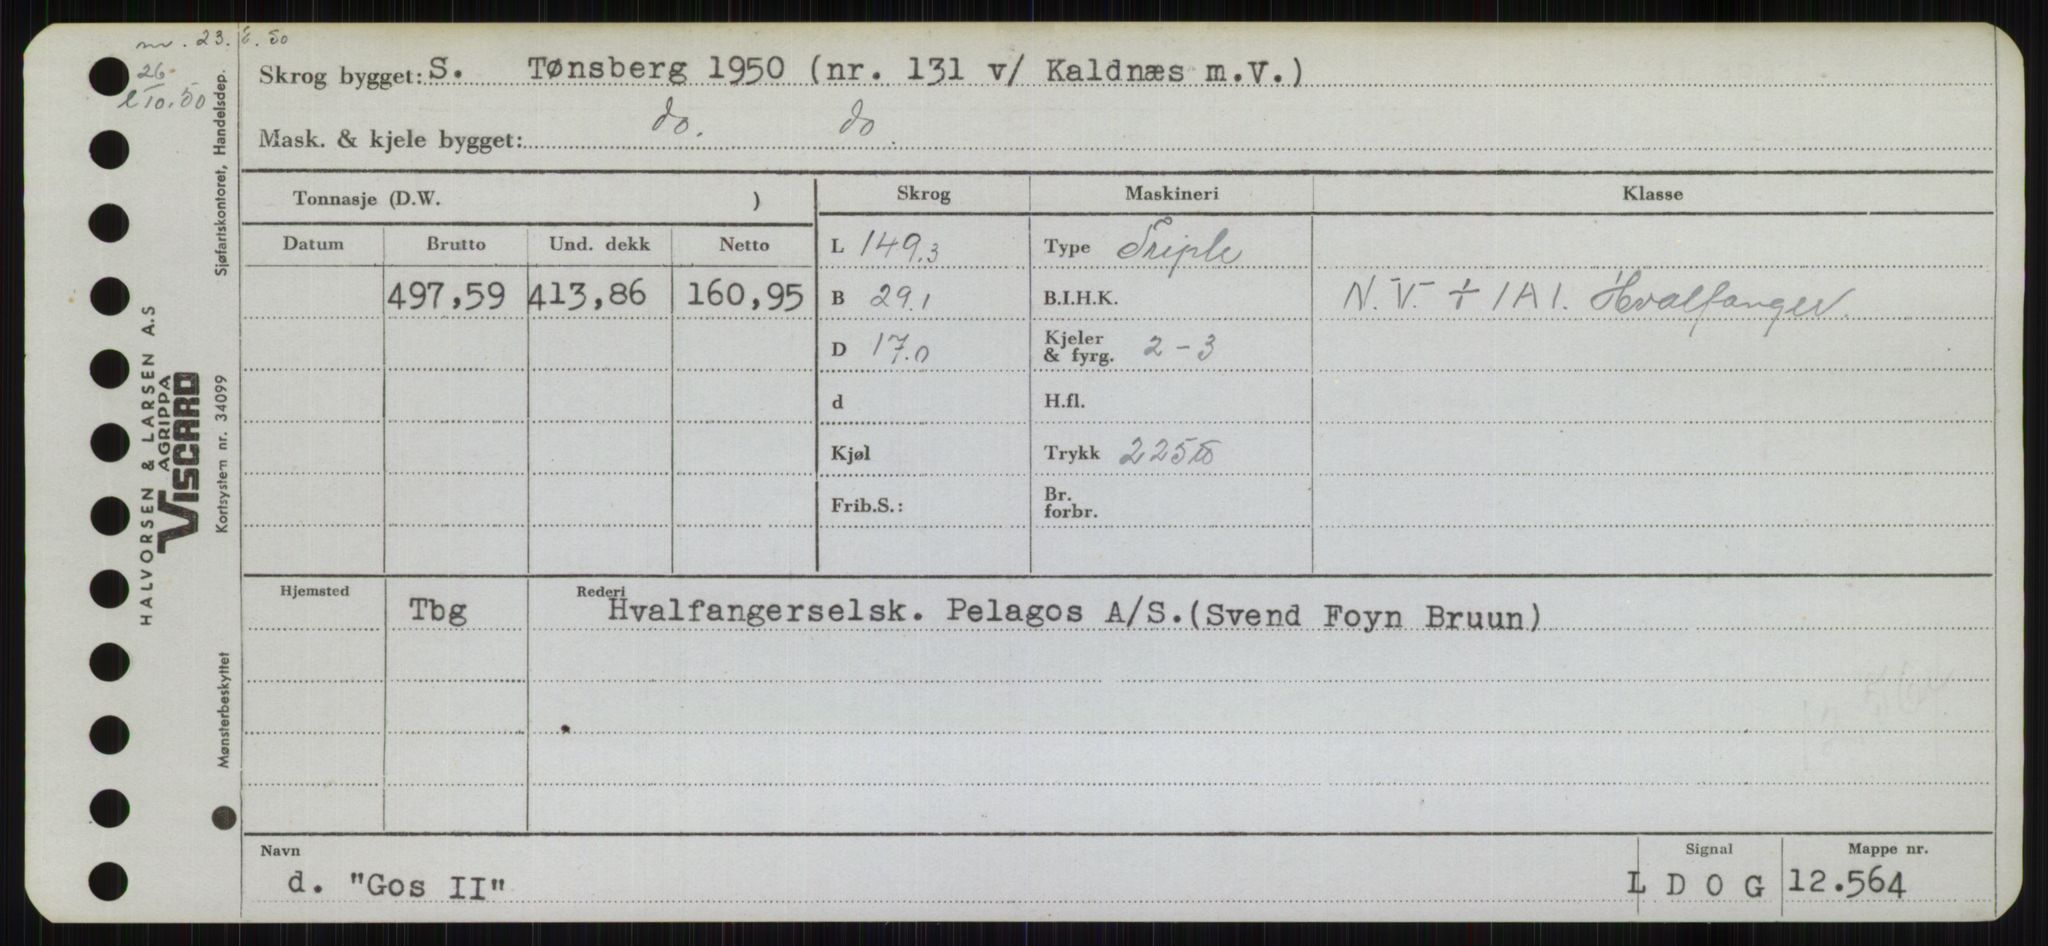 nr. 23. 50
26
10.50
Skrog bygget: S. Tønsberg 1950 (nr. 131 v/ Kaldnæs m.V.)
Mask. & kjele bygget: do. do.
Tonnasje (D.W. )
Skrog Maskineri Klasse
Datum Brutto Und. dekk Netto
L 149.3 Type Triple
497,59 413,86 160,95 B 29.1 B.I.H.K. N.V. + 1A1. Hvalfanger.
D 17.0 Kjeler & fyrg. 2-3
d H.fl.
Kjøl Trykk 225
Frib.S.: Br. forbr.
Hjemsted Tbg Rederi Hvalfangerselsk. Pelagos A/S.(Svend Foyn Bruun)
Navn Signal Mappe nr.
d. "Gos II" L D O G 12.564
HALVORSEN & LARSEN A.S
AGRIPPA
VISCARD
Mønsterbeskyttet Kortsystem nr. 34099 Sjøfartskontoret, Handelsdep.